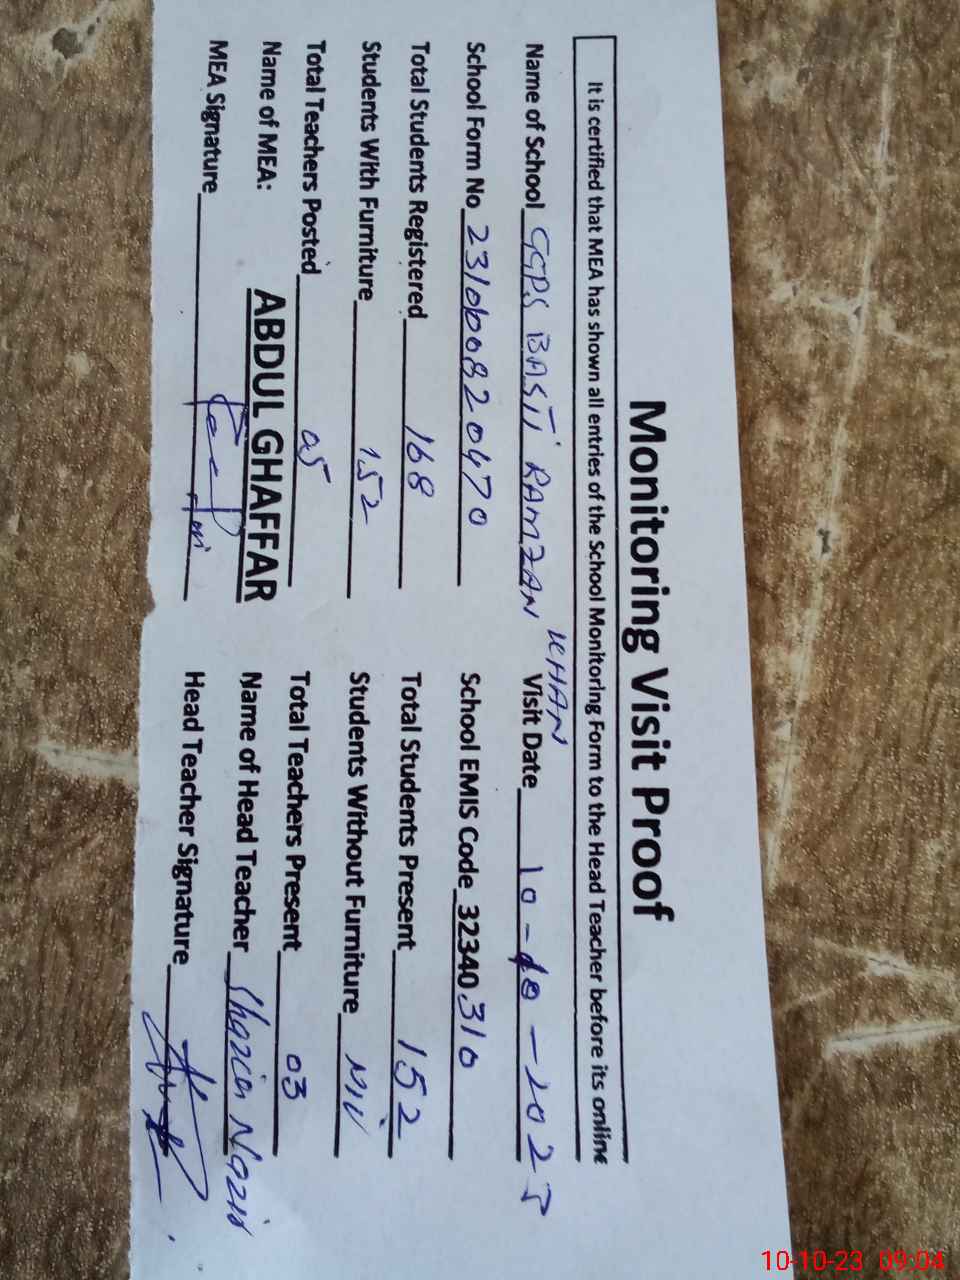 Monitoring Visit Proof
It is certified that MEA has shown all entries of the School Monitoring Form to the Head Teacher before its online
Name of School GGPS BASTI RAMZAN KHAN Visit Date 10-10-2023
School Form No 23100820470 School EMIS Code 32340310
Total Students Registered 168 Total Students Present 152
Students With Furniture 152 Students Without Furniture NIL
Total Teachers Posted 05 Total Teachers Present 03
Name of MEA: ABDUL GHAFFAR Name of Head Teacher Shazia Nazir
MEA Signature Head Teacher Signature
10-10-23 09:04